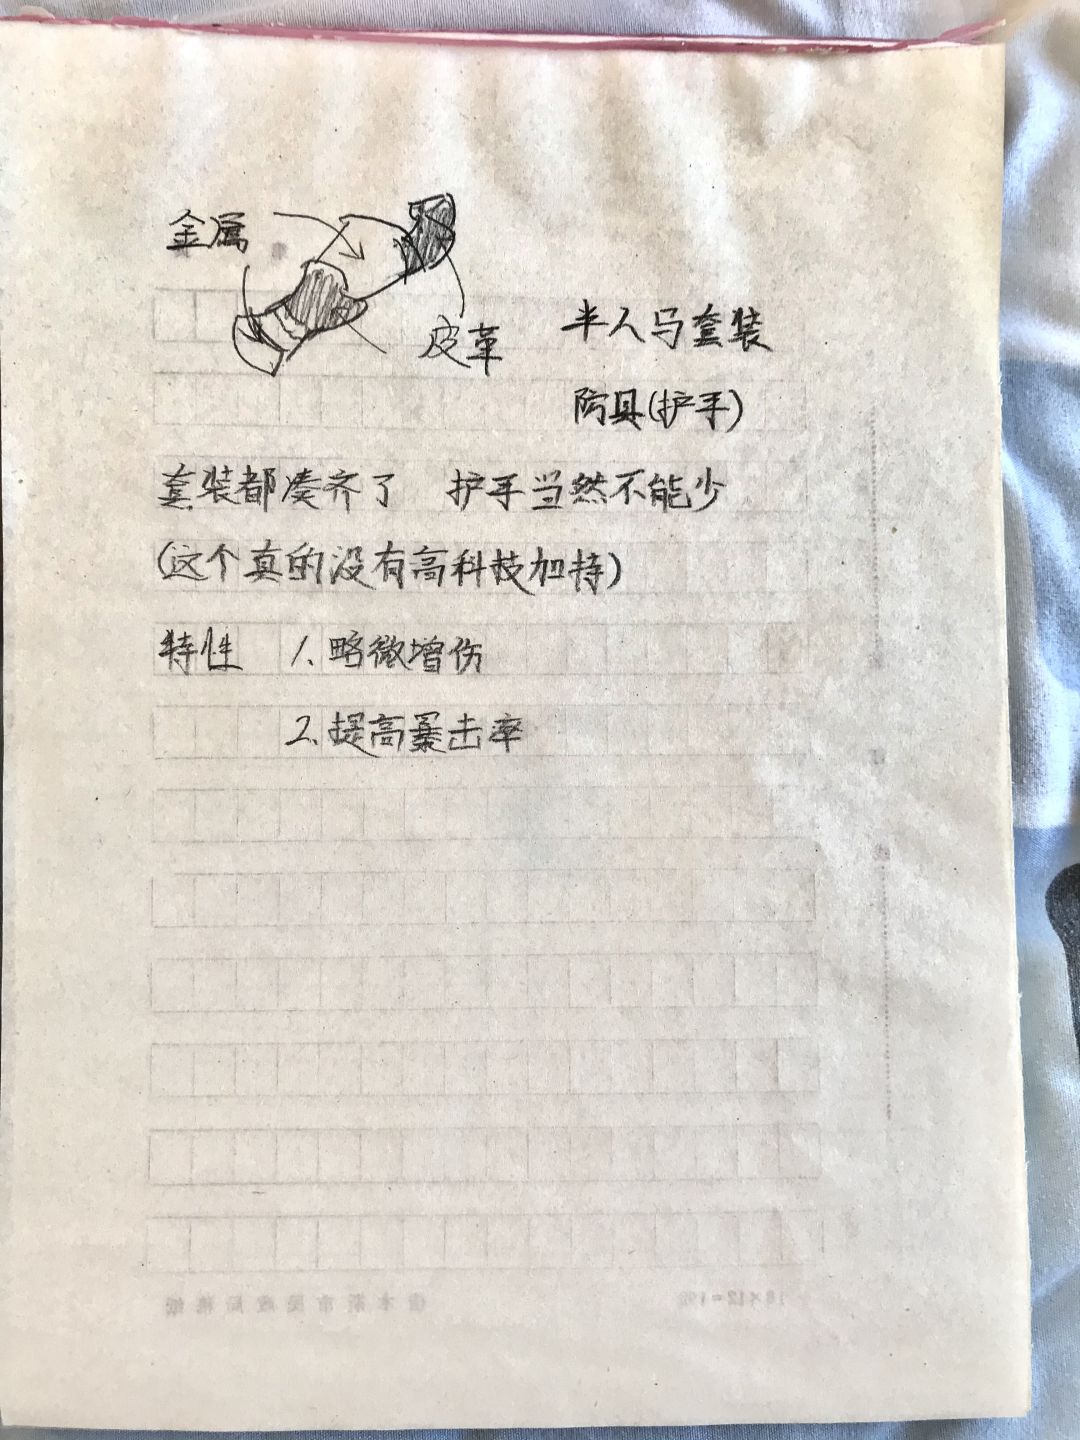 金属
皮革
半人马套装
防具(护手)
套装都凑齐了 护手当然不能少
(这个真的没有高科技加持)
特性 1.略微增伤
2.提高暴击率